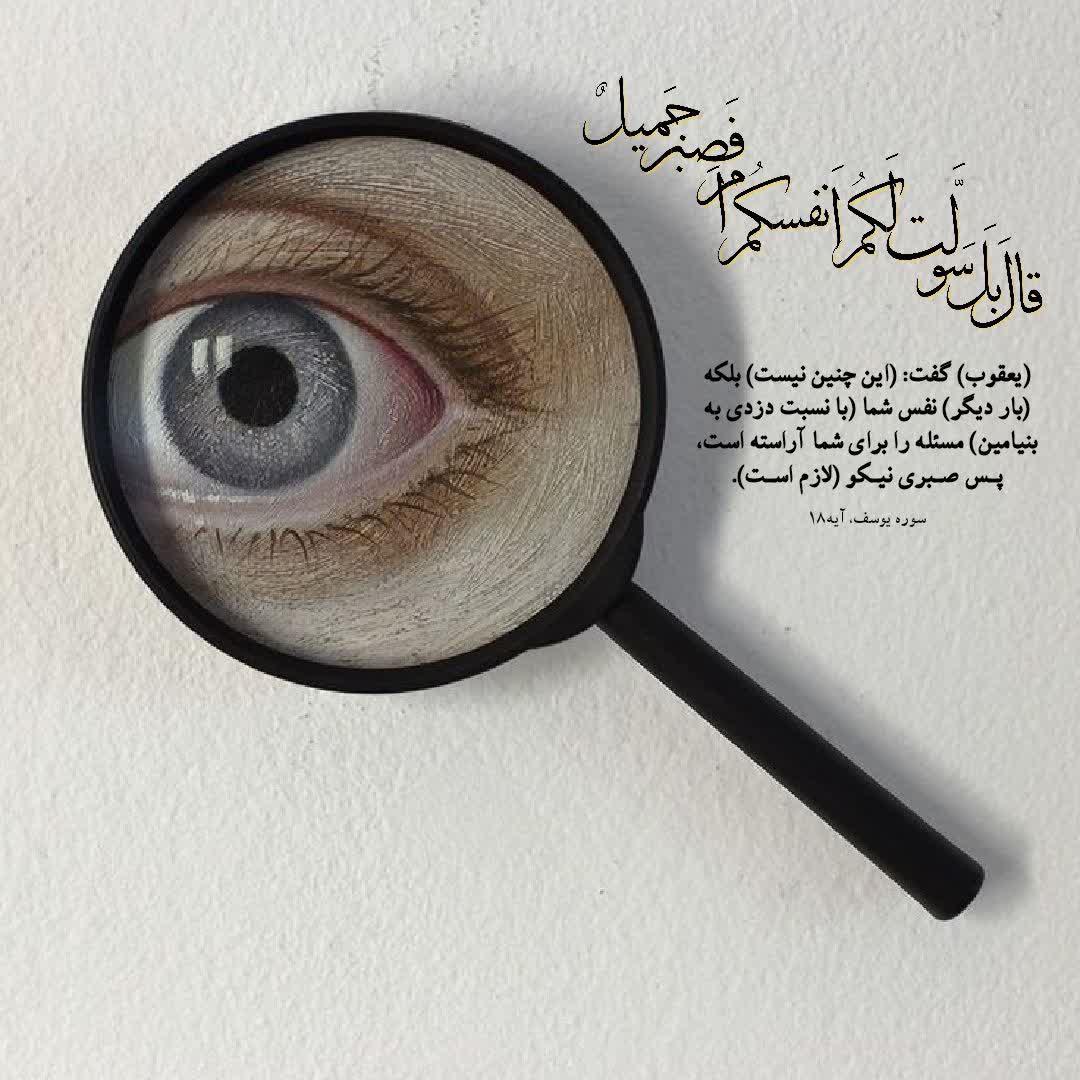 قَالَ بَلْ سَوَّلَتْ لَكُمْ أَنفُسُكُمْ أَمْرًا
فَصَبْرٌ جَمِيلٌ
(یعقوب) گفت: (این چنین نیست) بلکه
(بار دیگر) نفس شما (با نسبت دزدی به
بنیامین) مسئله را برای شما آراسته است،
پس صبری نیکو (لازم است).
سوره یوسف، آیه۱۸